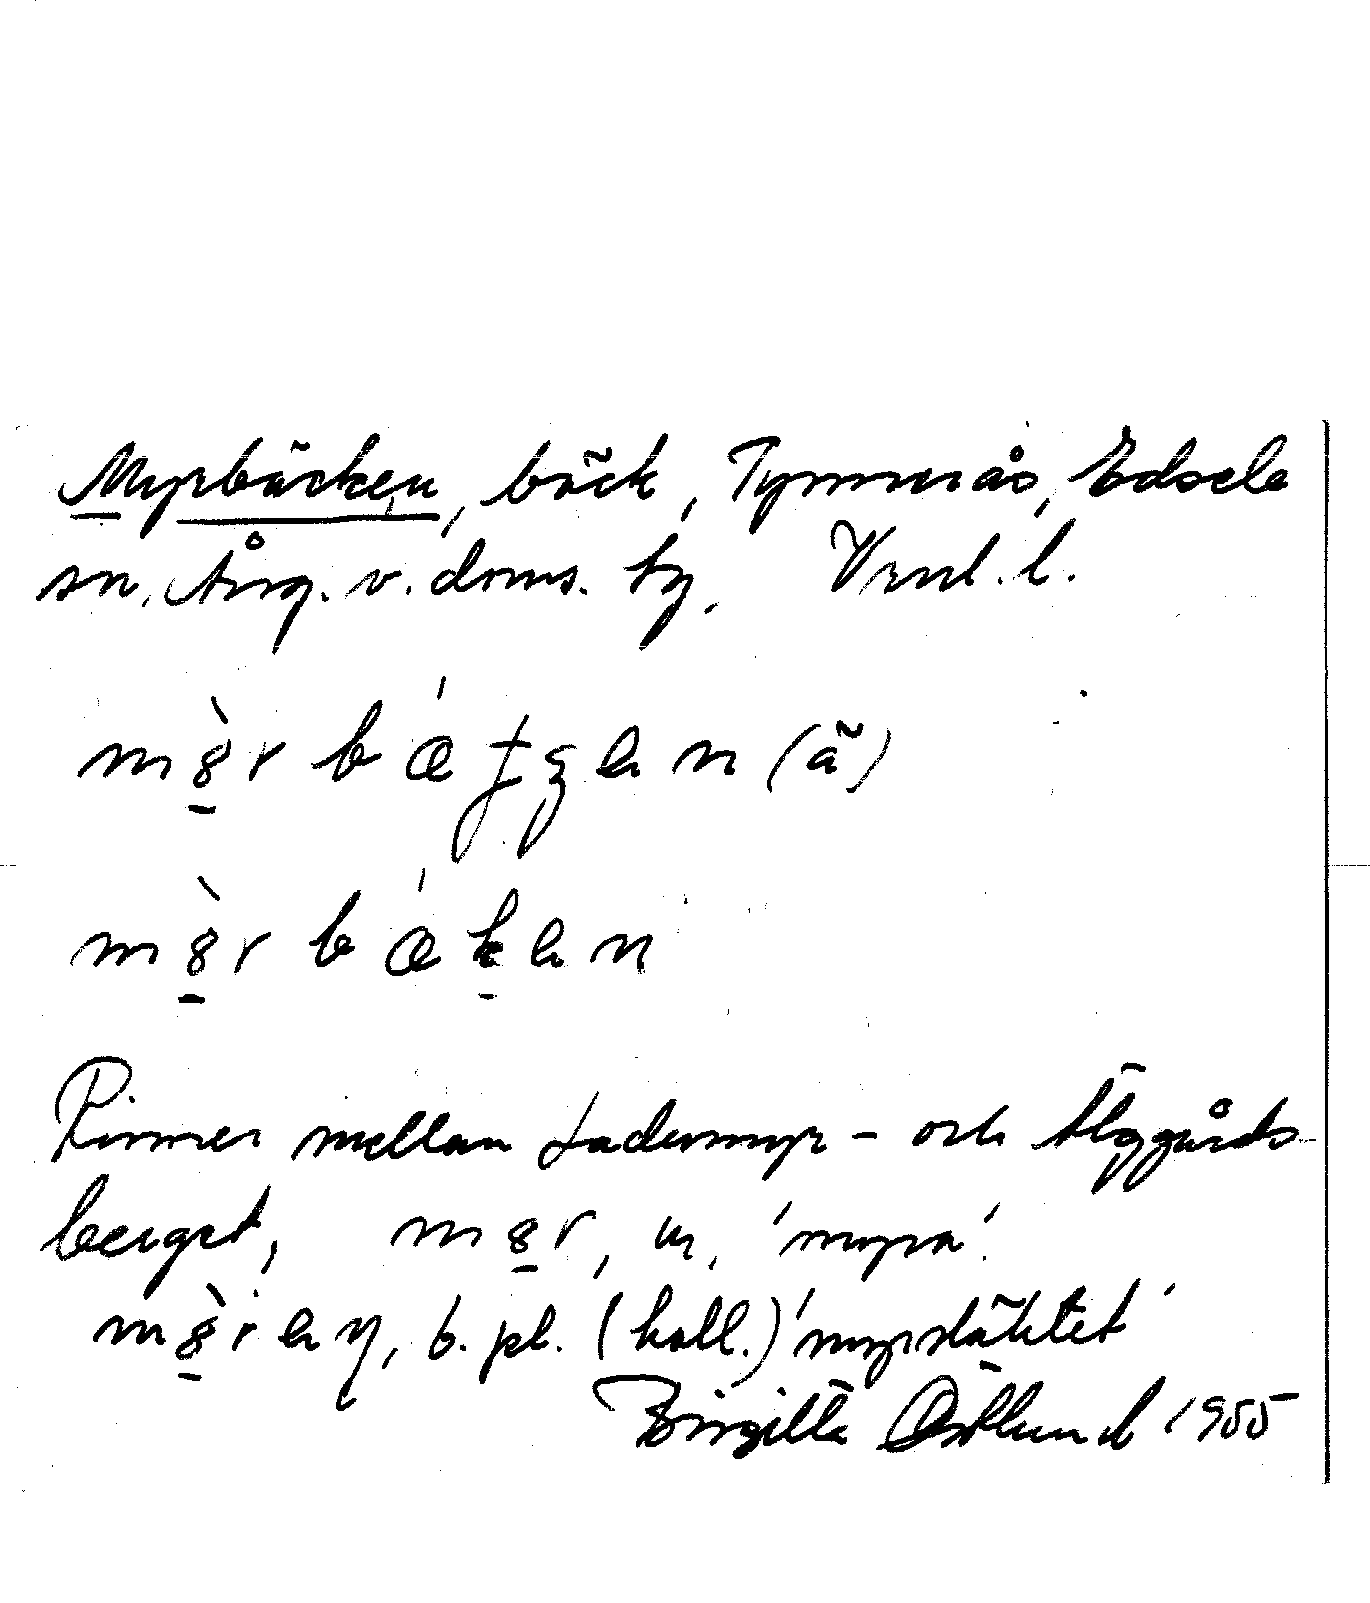 Myrbäcken, bäck, Tymmerås, Edsele
sn. Ång. v. doms. tg. Vnl. l.
m8̠̀r bǽ en (ä)
m8̠̀r bǽk̠en
Rinner mellan Lademyr- och Älggårds
berget, m8̠r, m. 'myra'.
m8̠̀reŋ, b. pl. (koll.) 'myrslåttet'
Birgitta Östlund 1955